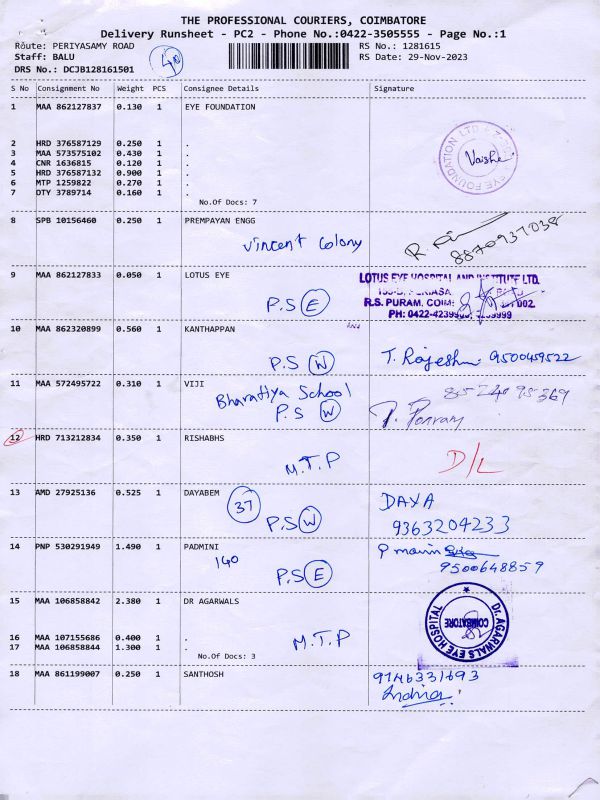 THE PROFESSIONAL COURIERS, COIMBATORE
Delivery Runsheet - PC2 - Phone No.:0422-3505555 - Page No.:1
Route: PERIYASAMY ROAD
RS No.: 1281615
Staff: BALU
RS Date: 29-Nov-2023
DRS No.: DCJB128161501
S No Consignment No Weight PCS Consignee Details Signature
1 MAA 862127837 0.130 1 EYE FOUNDATION
2 HRD 376587129 0.250 1 .
3 MAA 573575102 0.430 1 .
4 CNR 1636815 0.120 1 .
5 HRD 376587132 0.900 1 .
6 MTP 1259822 0.270 1 .
7 OTY 3789714 0.160 1 .
No.Of Docs: 7
EYE FOUNDATION LTD
8 SPB 10156460 0.250 1 PREMPAYAN ENGG
Vincent Colony
8870937038
9 MAA 862127833 0.050 1 LOTUS EYE
P.S E
LOTUS EYE HOSPITAL AND INSTITUTE LTD.
R.S. PURAM, COIM
PH: 0422-4239
10 MAA 862320899 0.560 1 KANTHAPPAN
P.S W
T. Rajeshm 9500459522
11 MAA 572495722 0.310 1 VIJI
Bharatiya School
P.S W
12 HRD 713212834 0.350 1 RISHABHS
M.T.P
D/L
13 AMD 27925136 0.525 1 DAYABEM
37
P.S W
DAYA
9363204233
14 PNP 530291949 1.490 1 PADMINI
140
P.S E
9500648859
15 MAA 106858842 2.380 1 DR AGARWALS
16 MAA 107155686 0.400 1 .
17 MAA 106858844 1.300 1 .
No.Of Docs: 3
M.T.P
Dr. AGARWALS EYE HOSPITAL
COIMBATORE
18 MAA 861199007 0.250 1 SANTHOSH